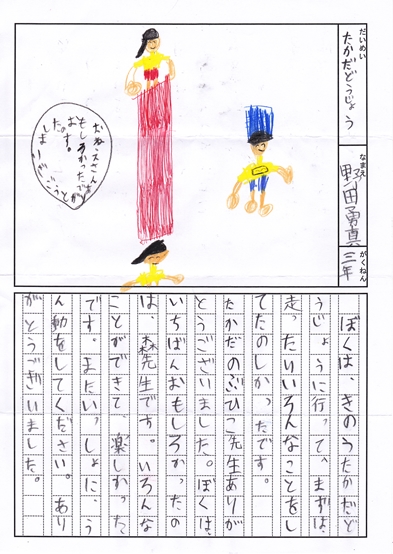 だいめい
たかだどうじょう
なまえ
野田勇真
がくねん
三年
もしろかったで
お
た。
す。
しまーす
ぼくは、きのうたかだど
うじょうに行って、まずは、
走ったりいろんなことをし
てたのしかったです。
たかだのぶひこ先生ありが
とうございました。ぼくは、
いちばんおもしろかったの
は、森先生です。いろんな
ことができて、楽しかった
です。またいっしょに、う
ん動をしてください。あり
がとうございました。